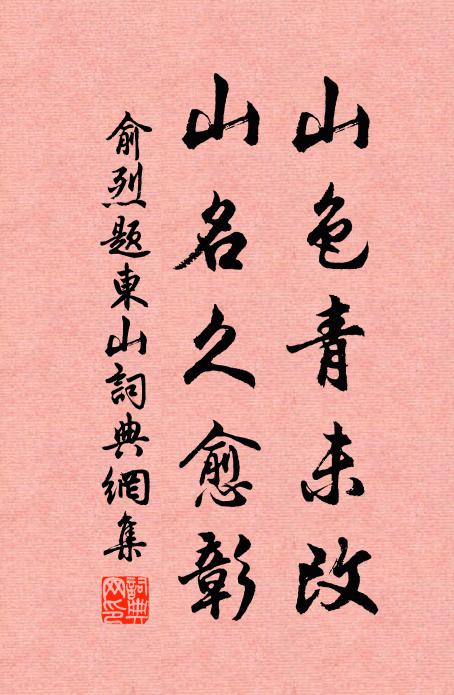 山色青未改
山名久愈彰
俞烈題東山詞典網集
詞典網印